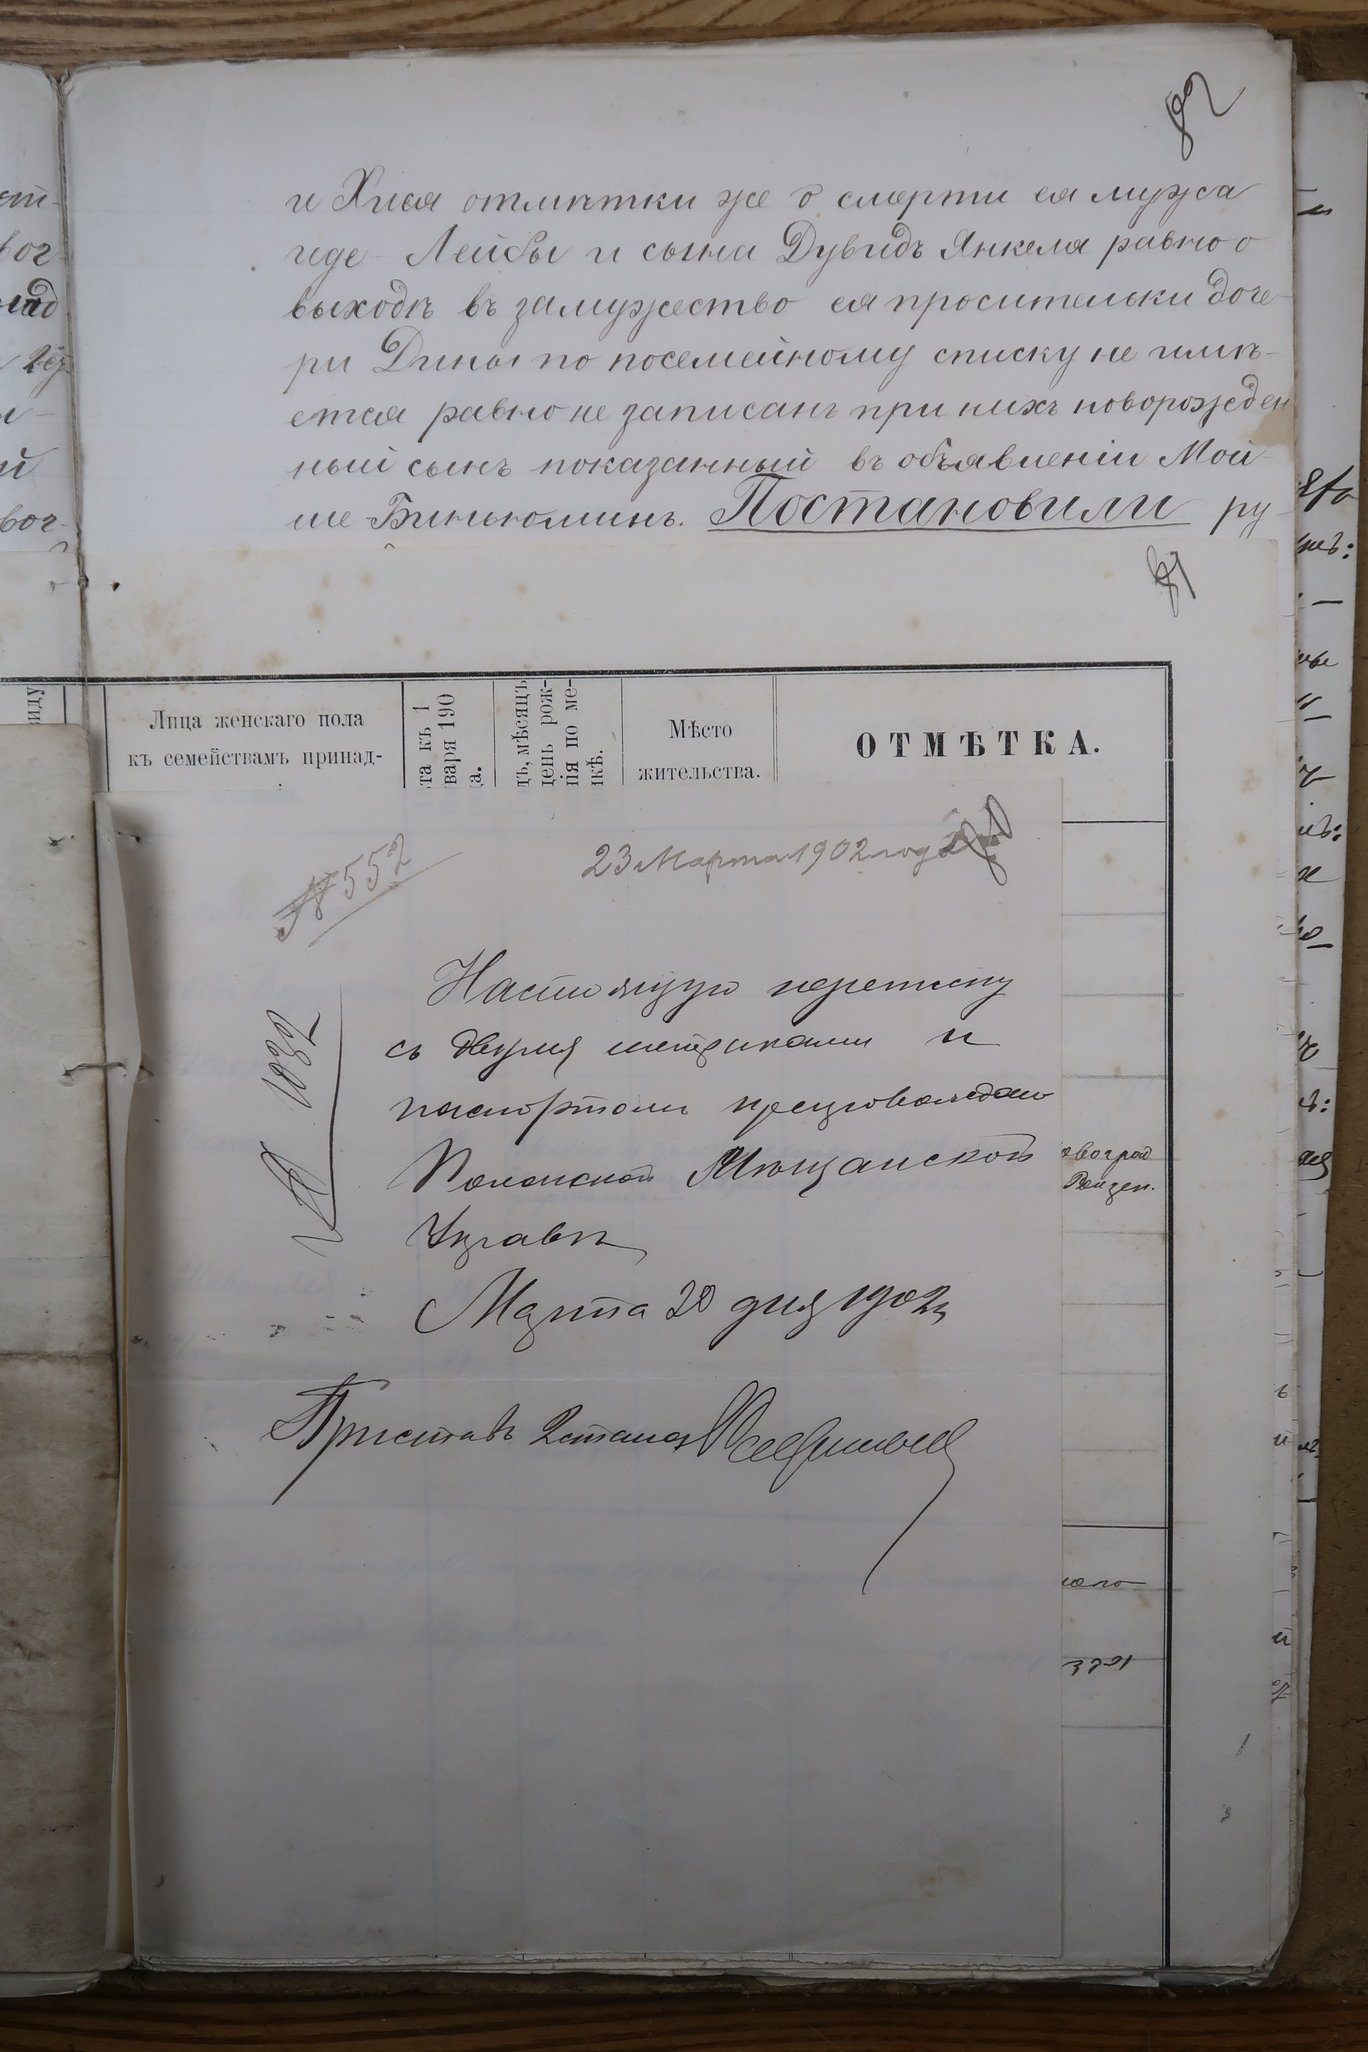 82
и Хися отмѣтки же о смерти ея мужа
иде-Лейбы и сына Дувидъ Янкеля равно о
выходѣ въ замужество ея просительки доче-
ри Дины по посемейному списку не имѣ-
ется равно не записанъ при нихъ новорожден
ный сынъ показанный въ объявленіи Мой-
ше-Биньюминъ. Постановили ру-
81
Лица женскаго пола
къ семействамъ принад-
та къ 1
варя 190
а.
ъ, мѣсяцъ
ень рож-
ія по ме-
кѣ.
Мѣсто
жительства.
ОТМѢТКА.
№ 552
23 Марта 1902 года
80
Настоящую переписку
съ двумя метриками и
паспортомъ препровождаю
№ 1032
Полонской Мѣщанской
Управѣ
Марта 20 дня 1902 г
Приставъ 2 стана